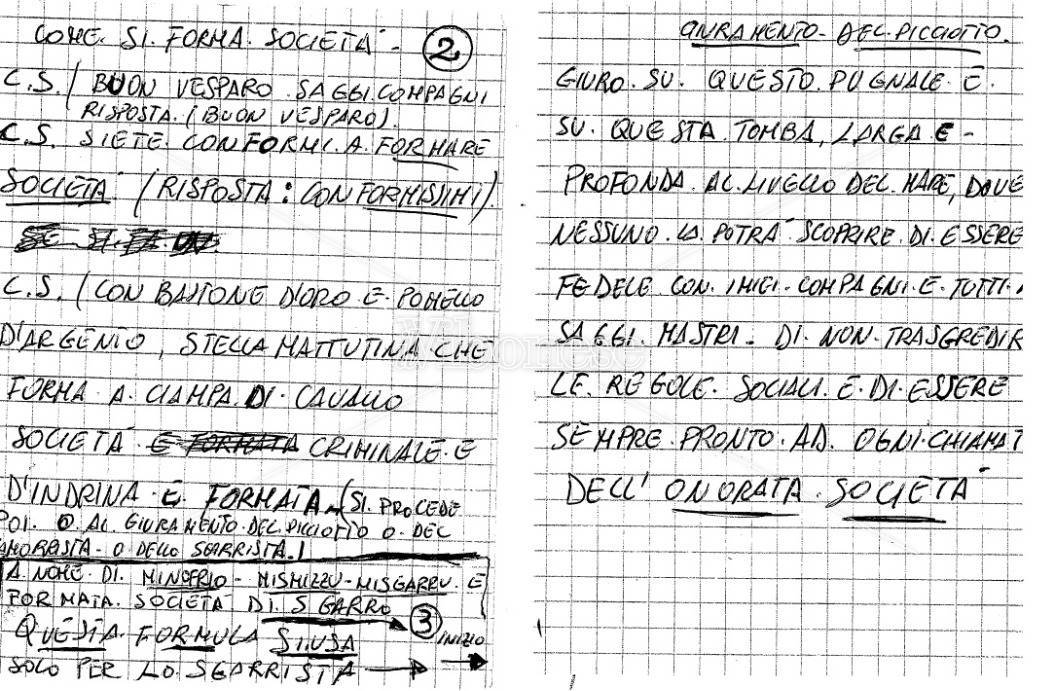 COME. SI. FORMA. SOCIETÀ - 2
C.S. / BUON VESPARO. SAGGI. COMPAGNI
RISPOSTA. (BUON VESPARO).
C.S. SIETE. CONFORMI. A. FORMARE
SOCIETA (RISPOSTA: CONFORMISSIMI).
C.S. (CON BASTONE D'ORO E. POMELLO
D'ARGENTO, STELLA MATTUTINA CHE
FORMA A. CIAMPA. DI. CAVALLO
SOCIETÀ E FORMATA CRIMINALE. E
D'INDRINA E. FORMATA. (SI. PROCEDE
POI. O AL GIURAMENTO. DEL. PICCIOTTO O. DEL
CAMORRISTA - O DELLO SGARRISTA.)
A NOME. DI. MINOFRIO - MISMIZZU - MISGARRU. E
FORMATA. SOCIETÀ DI. SGARRO 3
QUESTA. FORMULA SI USA INIZIO
SOLO PER LO. SGARRISTA
GIURAMENTO - DEL. PICCIOTTO.
GIURO. SU. QUESTO. PUGNALE. E.
SU. QUESTA. TOMBA, LARGA E -
PROFONDA. AL. LIVELLO DEL. MARE, DOVE
NESSUNO. LA. POTRÀ SCOPRIRE. DI. ESSERE
FEDELE. CON. I MIEI - COMPAGNI. E. TUTTI. I
SAGGI. MASTRI. DI. NON. TRASGREDIR
LE. REGOLE. SOCIALI. E. DI. ESSERE
SEMPRE. PRONTO. AD. OGNI. CHIAMAT
DELL' ONORATA. SOCIETÀ